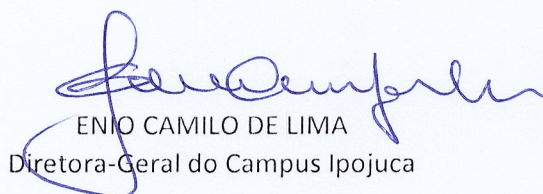 ENIO CAMILO DE LIMA
Diretora-Geral do Campus Ipojuca